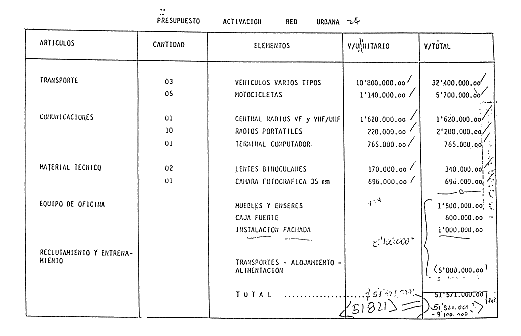 PRESUPUESTO ACTIVACION RED URBANA
ARTICULOS CANTIDAD ELEMENTOS V/UNITARIO V/TOTAL
TRANSPORTE 03 VEHICULOS VARIOS TIPOS 10'800.000.oo 32'400.000.oo
05 MOTOCICLETAS 1'140.000.oo 5'700.000.oo
COMUNICACIONES 01 CENTRAL RADIOS VF y VHF/UHF 1'620.000.oo 1'620.000.oo
10 RADIOS PORTATILES 220.000.oo 2'200.000.oo
01 TERMINAL COMPUTADOR 765.000.oo 765.000.oo
MATERIAL TECNICO 02 LENTES BINOCULARES 170.000.oo 340.000.oo
01 CAMARA FOTOGRAFICA 35 mm 696.000.oo 696.000.oo
EQUIPO DE OFICINA MUEBLES Y ENSERES 1'500.000.oo
CAJA FUERTE 600.000.oo
INSTALACION FACHADA 1'000.000.oo
RECLUTAMIENTO Y ENTRENA-
MIENTO TRANSPORTES - ALOJAMIENTO -
ALIMENTACION (5'000.000.oo)
T O T A L .................. 51'571.000.oo
(51821)